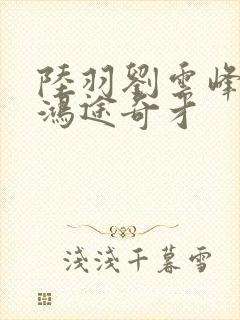 陸羽劉雲峰
鴻途奇才
淺淺千暮雪